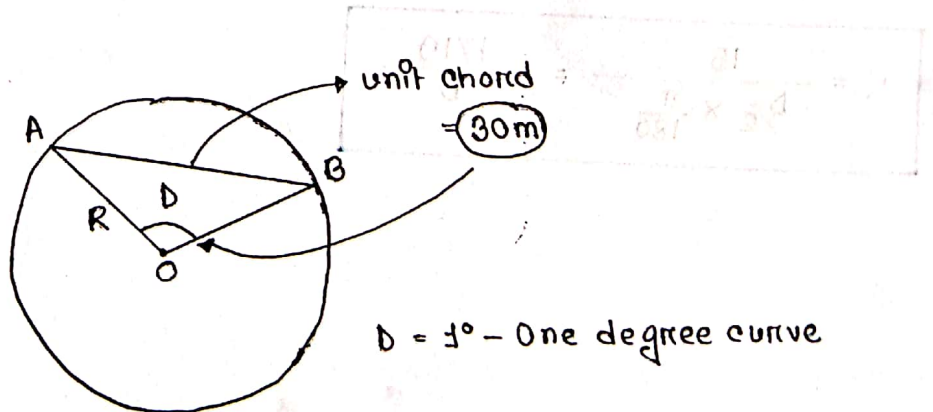 unit chord
= 30m
A
B
D
R
O
D = 1° – One degree curve